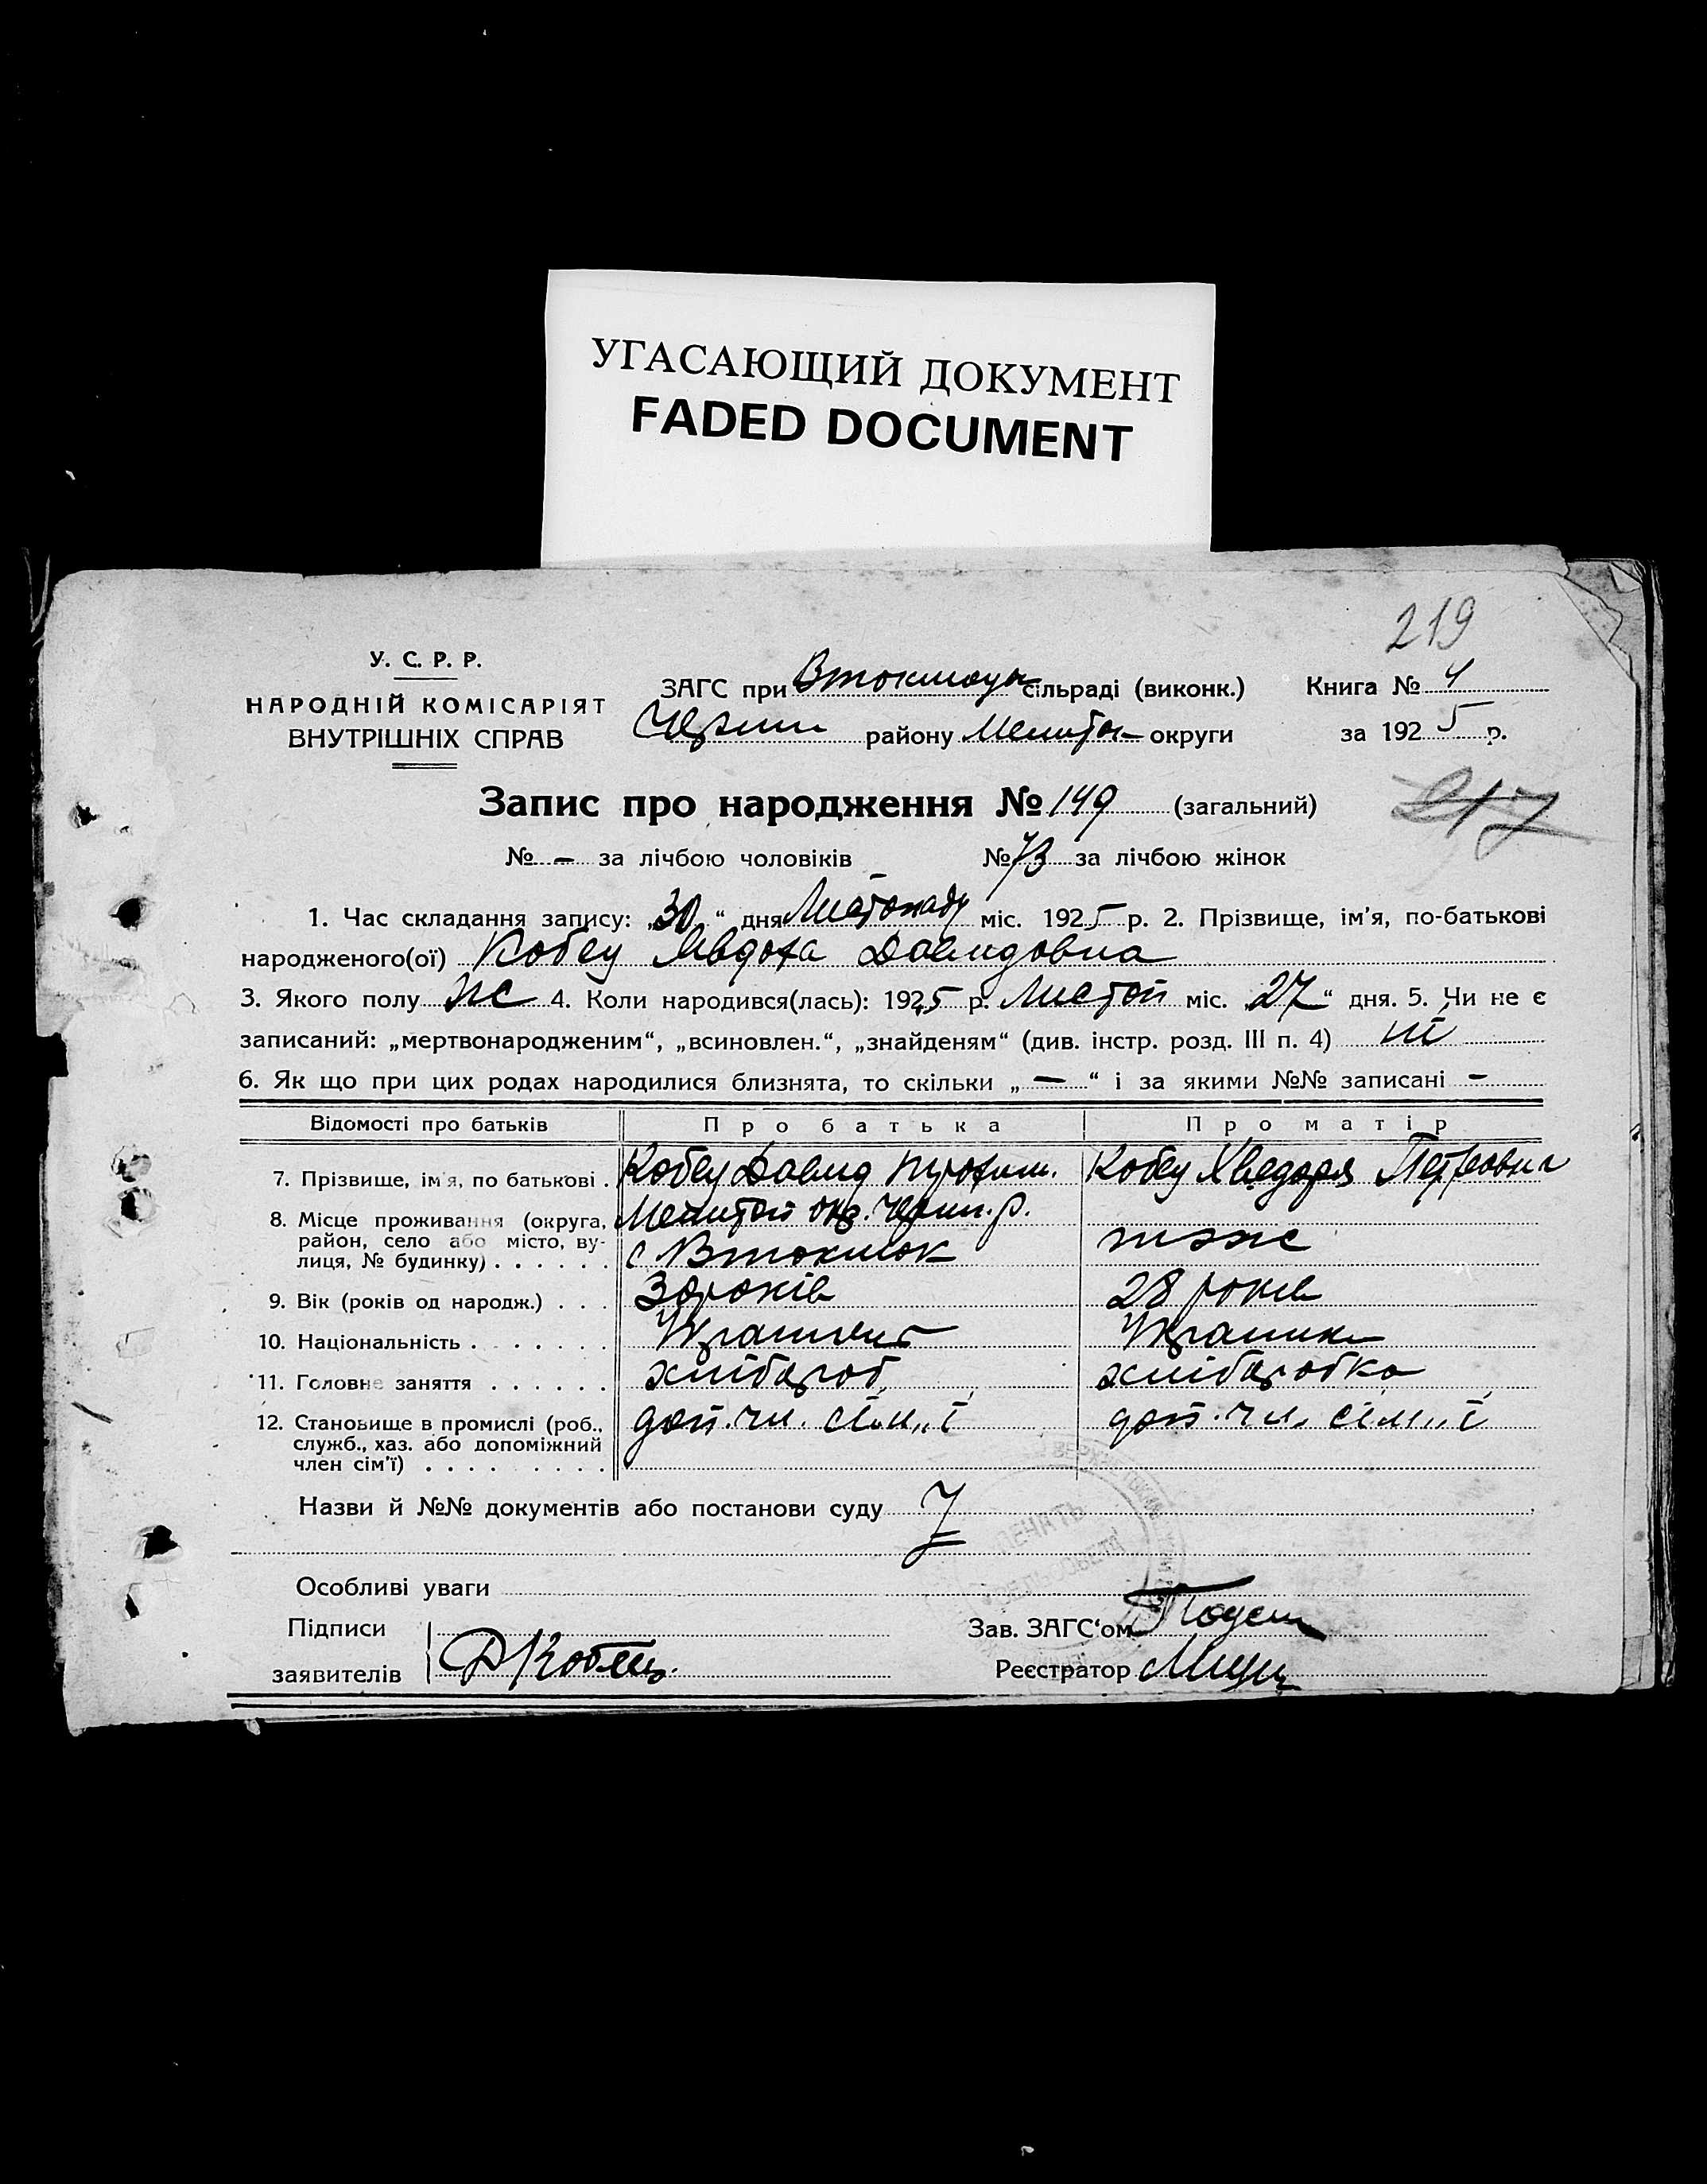 УГАСАЮЩИЙ ДОКУМЕНТ
FADED DOCUMENT
219
У. С. Р. Р.
НАРОДНІЙ КОМІСАРІЯТ
ВНУТРІШНІХ СПРАВ
ЗАГС при Втокмацьк сільраді (виконк.)
Черниг району Мелитоп округи
Книга № 4
за 1925 р.
Запис про народження № 149 (загальний)
217
№ – за лічбою чоловіків № 73 за лічбою жінок
1. Час складання запису: „30“ дня Листопаду міс. 1925 р. 2. Прізвище, ім'я, по-батькові
народженого(ої) Кобец Явдоха Давидовна
3. Якого полу ж 4. Коли народився(лась): 1925 р. Листоп міс. 27“ дня. 5. Чи не є
записаний: „мертвонародженим“, „всиновлен.“, „знайденям“ (див. інстр. розд. III п. 4) ні
6. Як що при цих родах народилися близнята, то скільки „ — “ і за якими №№ записані –
Відомості про батьків Про батька Про матір
7. Прізвище, ім'я, по батькові . Кобец Давид Трохим. Кобец Хведора Петровна
8. Місце проживання (округа, район, село або місто, вулиця, № будинку) . . . . . . Мелитоп окр. Черниг. р.
с Втокмак тож
9. Вік (років од народж.) . . . 30 років 28 років
10. Національність . . . . . . . Українец Українка
11. Головне заняття . . . . . . хлібороб хліборобка
12. Становище в промислі (роб., служб., хаз. або допоміжний член сім'ї) . . . . . . . . . доп. чл. сім'ї доп. чл. сім'ї
Назви й №№ документів або постанови суду
Особливі уваги
Підписи
заявителів Д Кобець
Зав. ЗАГС'ом
Реєстратор